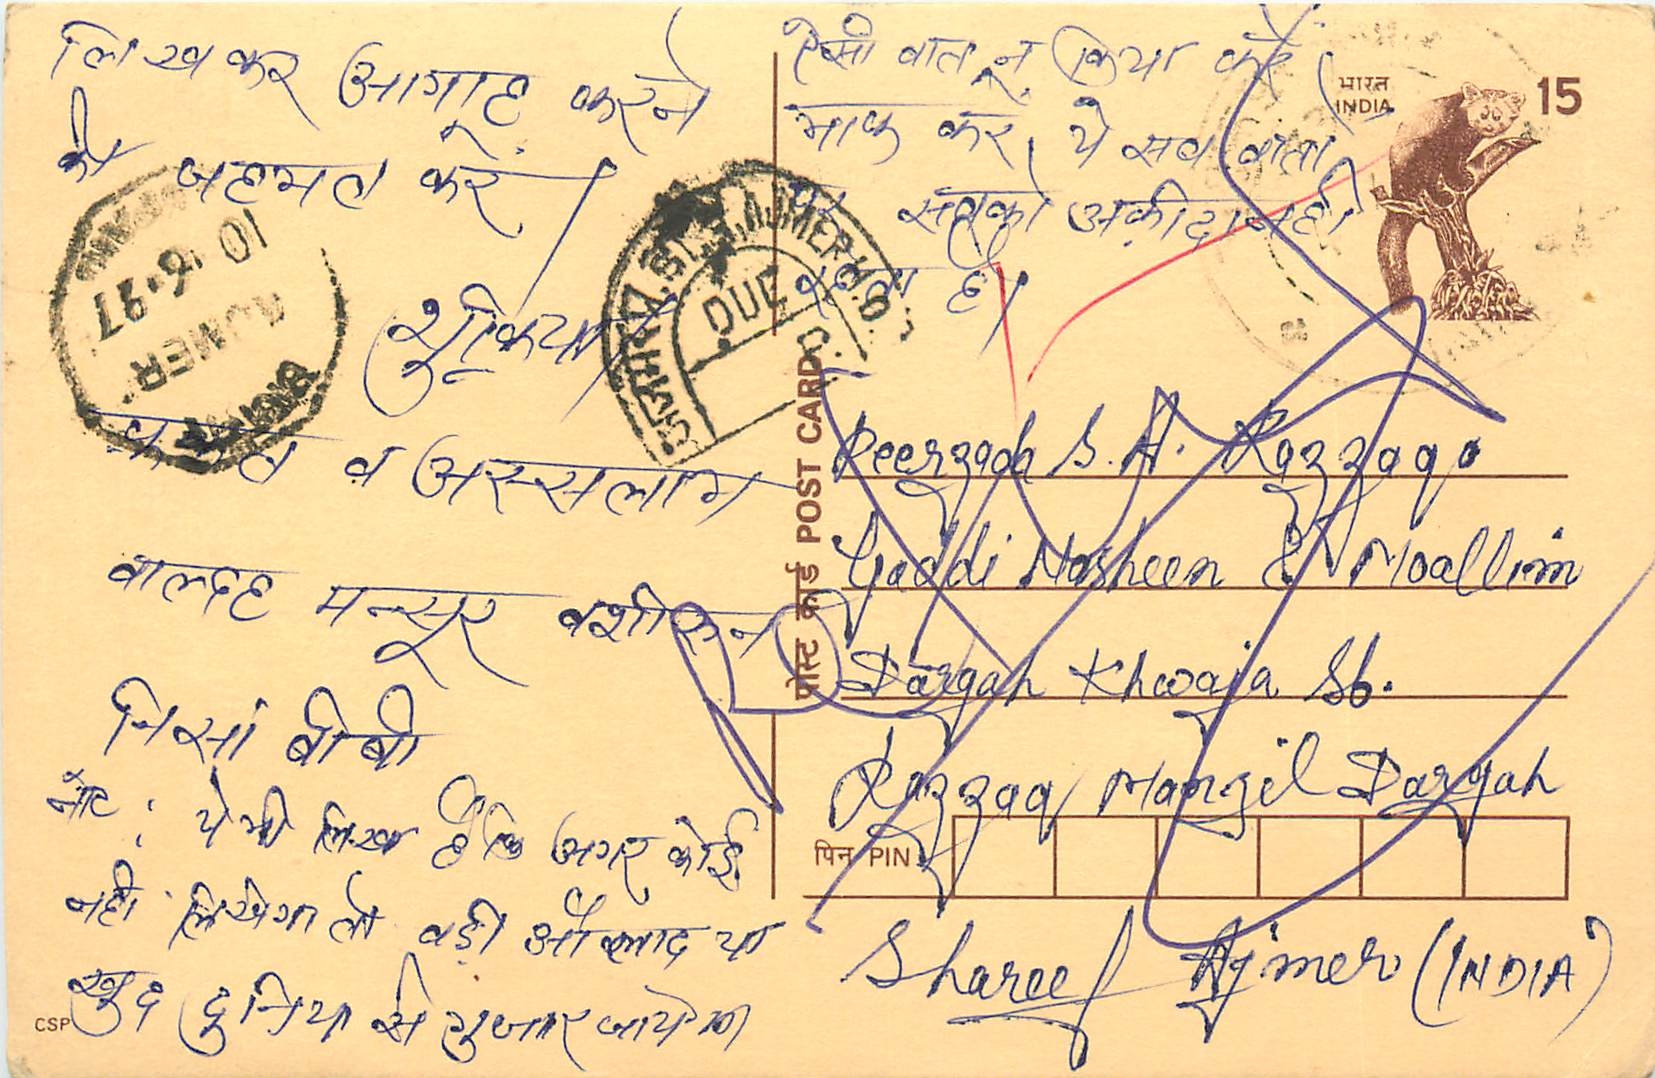 लिख कर आगाह करने
की जहमत करें
शुक्रिया
फकत व अस्सलाम
वाल्दह मन्सूर वशीरुन
निसां बीबी
नोट : ये भी लिखा है कि अगर कोई
नही लिखेगा तो बड़ी औलाद या
खुद दुनिया से गुजार जायेगा
ऐसी बात न किया करें
माफ करें, ये सब बातों
पर सबको अकीदा नही
रहता है।
भारत
INDIA
15
10.6.97
AJMER
AJMER H.O.
DUE
पोस्ट कार्ड POST CARD
Peerzada S. A. Razzaq
Gaddi Nasheen & Moallim
Dargah Khwaja Sb.
Razzaq Manzil Dargah
पिन PIN
Shareef Ajmer (INDIA)
CSP